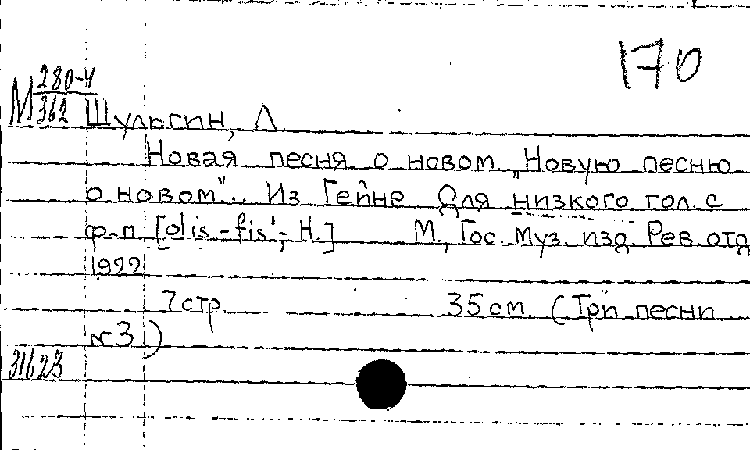 170
М 280-4
362 Шульгин, Л
Новая песня о новом „Новую песню
о новом“. Из Гейне Для низкого гол. с
ф-п [dis-fis'; H.] М., Гос. Муз. изд Рев. отд
1922
7 стр. 35 см (Три песни
№ 3)
31623